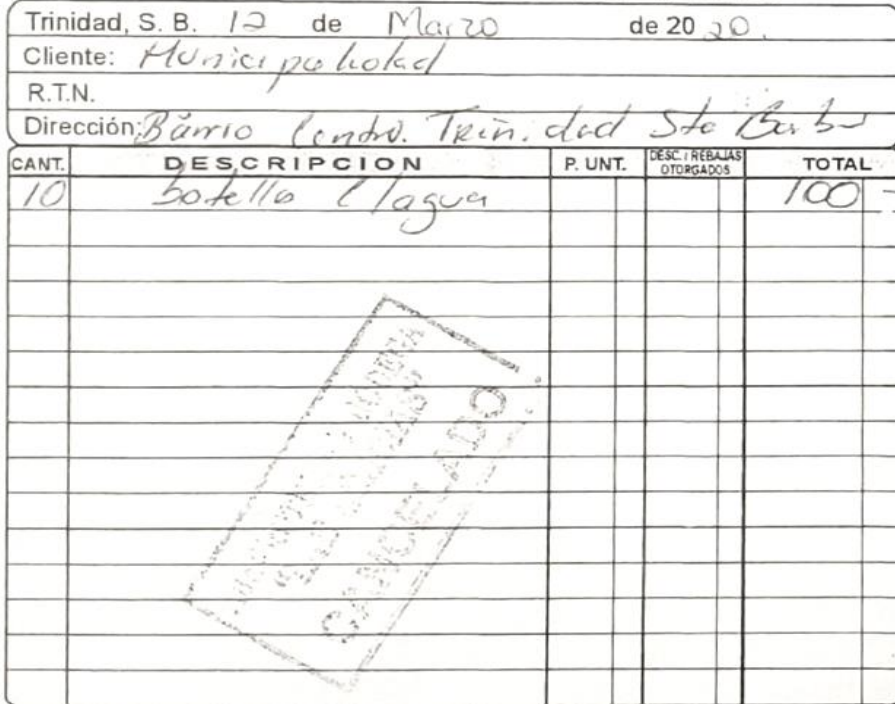 Trinidad, S. B. 12 de Marzo de 2020.
Cliente: Municipalidad
R.T.N.
Dirección: Barrio Centro. Trinidad Sta Barb
CANT. DESCRIPCION P. UNT. DESC. / REBAJAS OTORGADOS TOTAL
10 botella c/agua 100 -
CANCELADO